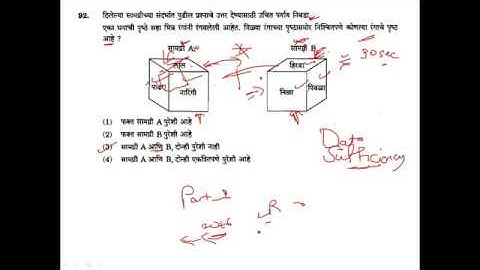 92. दिलेल्या सामग्रीच्या संदर्भात पुढील प्रश्नाचे उत्तर देण्यासाठी उचित पर्याय निवडा.
एका घनाची पृष्ठे सहा भिन्न रंगांनी रंगवलेली आहेत. पिवळ्या रंगाच्या पृष्ठासमोर निश्चितपणे कोणत्या रंगाचे पृष्ठ
आहे ?
सामग्री A
सामग्री B
30 sec
लाल
हिरवा
पांढरा
नारिंगी
निळा
पिवळा
(1) फक्त सामग्री A पुरेशी आहे
(2) फक्त सामग्री B पुरेशी आहे
(3) सामग्री A आणि B, दोन्ही पुरेशी नाही
(4) सामग्री A आणि B, दोन्ही एकत्रितपणे पुरेशी आहे
Data
Sufficiency
Part 1
R